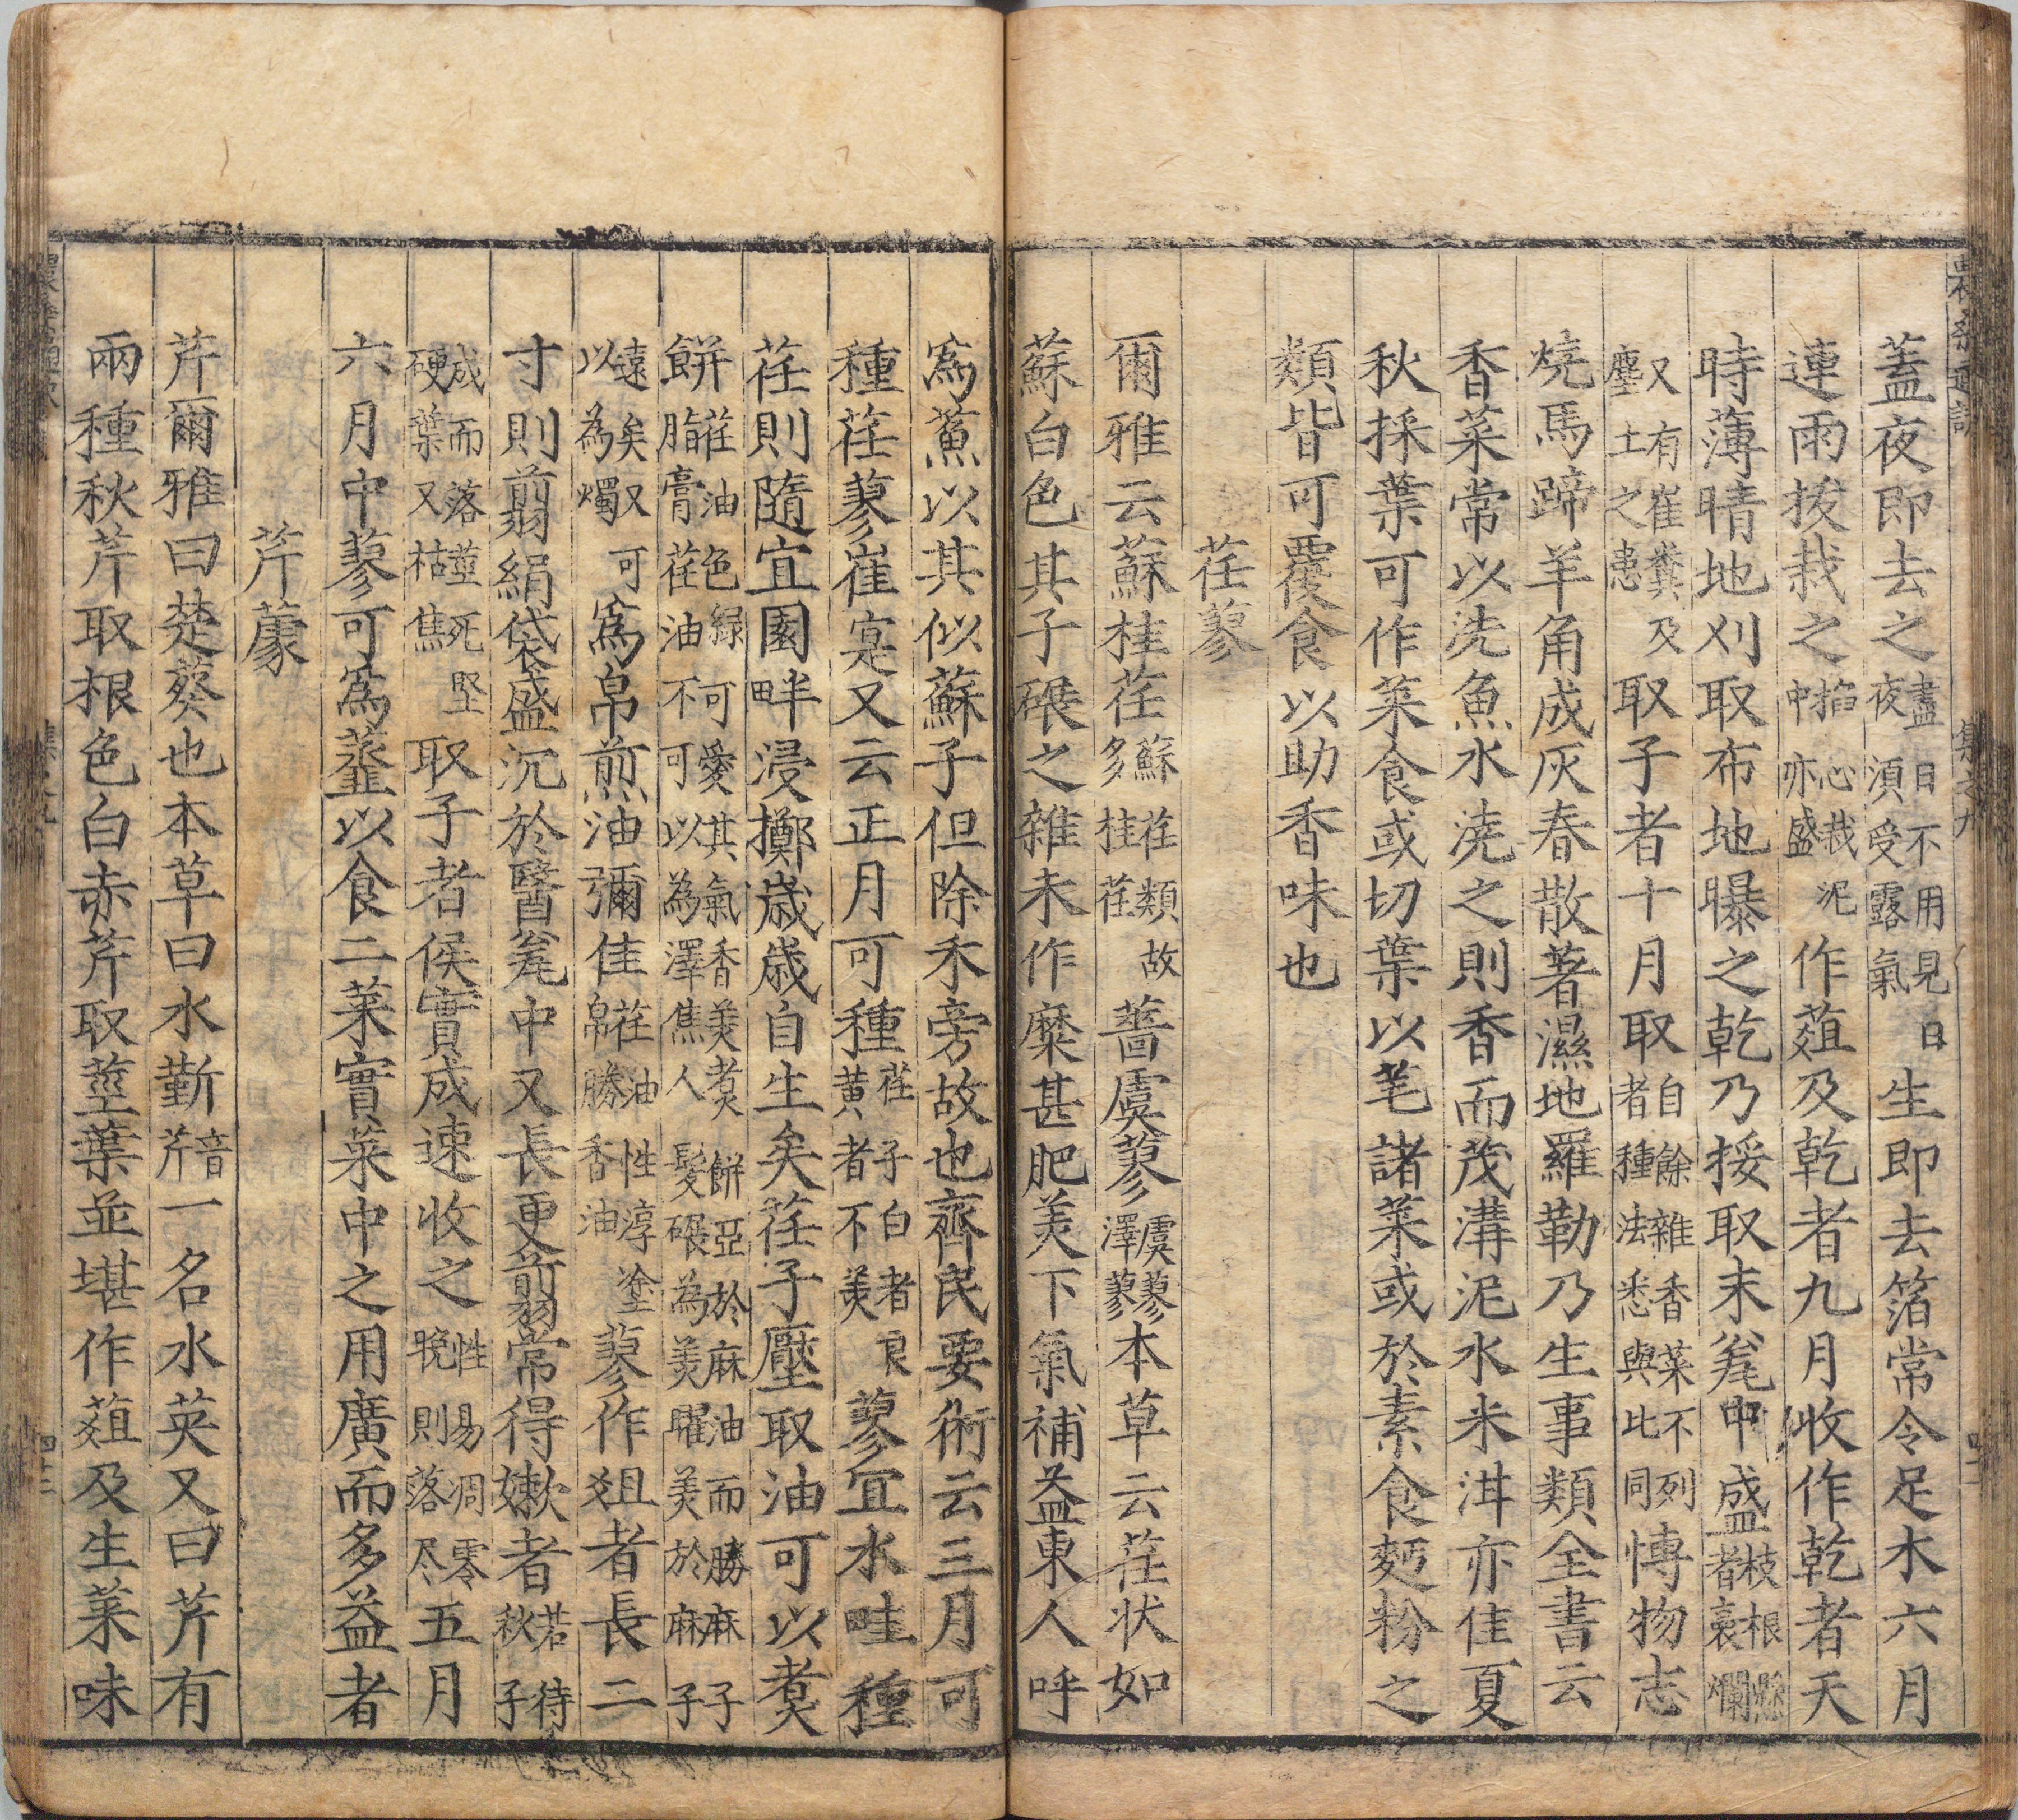 蓋夜即去之盡日不用見日夜須受露氣生即去箔常令足水六月
連雨拔栽之掐心栽泥中亦盛作葅及乾者九月收作乾者天
時薄晴地刈取布地曝之乾乃挼取末瓮中盛枝根懸者裛爛
又有雀糞及塵土之患取子者十月取自餘雜香菜不列者種法悉與比同博物志
燒馬蹄羊角成灰春散著濕地羅勒乃生事類全書云
香菜常以洗魚水澆之則香而茂溝泥水米泔亦佳夏
秋採葉可作菜食或切葉以芼諸菜或於素食麪粉之
類皆可覆食以助香味也
荏蓼
爾雅云蘇桂荏蘇荏類故多桂荏薔虞蓼虞蓼澤蓼本草云荏状如
蘇白色其子碾之雜米作糜甚肥美下氣補益東人呼
爲䔥以其似蘇子但除禾旁故也齊民要術云三月可
種荏蓼崔寔又云正月可種荏子白者良黄者不美蓼宜水畦種
荏則隨宜園畔浸擲歲歲自生矣荏子壓取油可以煑
餅荏油色緑可愛其氣香美煑餅亞於麻油而勝麻子脂膏荏油不可以為澤焦人髮碾為羮臛美於麻子
遠矣又可以為燭爲帛煎油彌佳荏油性淳塗帛勝香油蓼作俎者長二
寸則翦絹袋盛沉於醬瓮中又長更翦常得嫩者若待秋子
成而落莖死堅硬葉又枯焦取子者候實成速收之性易凋零晚則落尽五月
六月中蓼可爲虀以食二菜實菜中之用廣而多益者
芹䕷
芹爾雅曰楚葵也本草曰水靳音芹一名水英又曰芹有
兩種秋芹取根色白赤芹取莖葉並堪作葅及生菜味